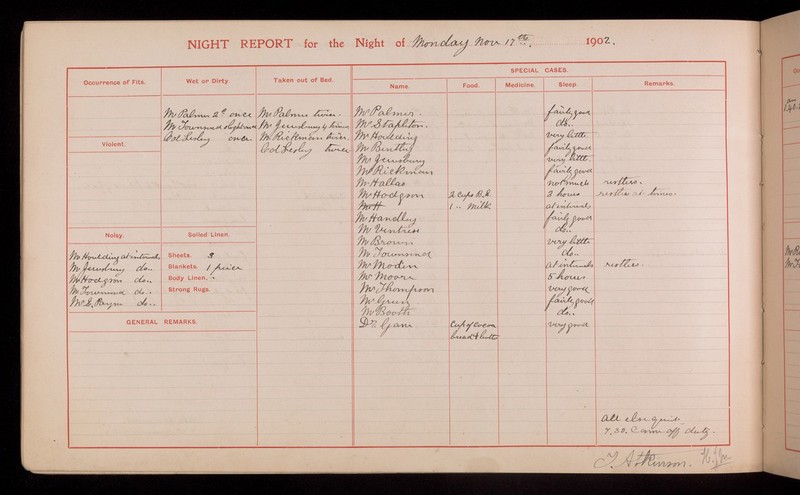 NIGHT REPORT for the Night of Monday Nov 17th. 1902.
Occurrence of Fits.
Wet or Dirty.
Taken out of Bed.
SPECIAL CASES.
Name.
Food.
Medicine.
Sleep.
Remarks.
Mr Palmer once
Mr Townsend
Col Lesley once.
Mr Palmer twice.
Mr Jewsbury 4 times
Mr Rickman twice.
Col Lesley twice
Violent.
Noisy.
Mr Houlding at intervals
Mr Jewsbury do..
Mr Hodgson do..
Mr Townsend do..
Mr E. Payne do..
Soiled Linen.
Sheets. 3
Blankets. 1 piece
Body Linen. "
Strong Rugs.
GENERAL REMARKS.
Mr Palmer. fairly good
Mr Stapleton. do..
Mr Houlding very little
Mr Bentley fairly good
Mr Jewsbury very little.
Mr Rickman fairly good
Mr Hallas not much restless.
Mr Hodgson 2 cups 3 hours restless at times.
1 .. milk at intervals
Mr Handley fairly good
Mr Ventriss do..
Mr Brown very little
Mr Townsend do..
Mr Moden at intervals restless.
Mr Moore 5 hours
Mr Thompson very good
Mr Green fairly good
Mr Booth do..
Dr Jane Cup of Cocoa very good
bread & butter
all else quiet
7.30. Came off duty.
J. Atkinson.